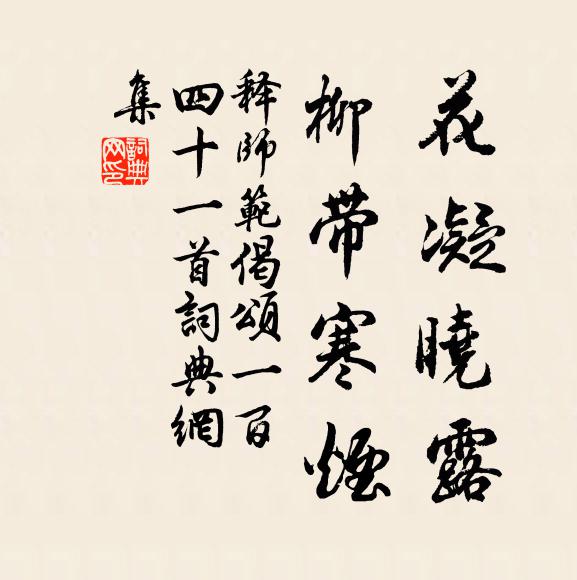 花凝曉露
柳帶寒煙
释師範偈頌一百
四十一首詞典網
集
詞典
网印